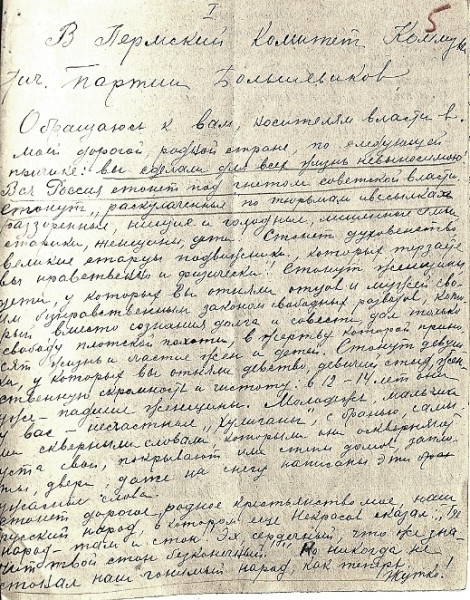 I
5
В Пермский Комитет Коммун
ич. Партии Большевиков.
Обращаюсь к вам, носителям власти в
моей дорогой родной стране, по следующей
причине: вы сделали для всех жизнь невыносимою.
Вся Россия стонет под гнетом советской власти.
Стонут „раскулаченные" по тюрьмам и ссылках
раззоренные, нищие и голодные, лишенные
старики, женщины, дети. Стонет духовенство,
великие старцы подвижники, которых терзаете
вы нравственно и физически. Стонут женщины
дети, у которых вы отняли отцов и мужей сво-
им безнравственным законом свободных разводов, кото-
рый вместо сознания долга и совести дал только
свободу плотской похоти, в жертву которой прино-
сят жизнь и счастие жен и детей. Стонут девуш
ки, у которых вы отняли девство, девичий стыд, жен
ственную скромность и чистоту: в 12-14 лет они
уже - падшие женщины. Молодежь, мальчики
у вас - несчастные „хулиганы", с бранью, самы
ми скверными словами, которыми они оскверняют
уста свои, покрывают ими стены домов, запло
ты, двери, даже на снегу написаны эти бран
ужасные слова.
Стонет дорогое - родное крестьянство мое, наш
русский народ, о котором еще Некрасов сказал „Где
народ - там и стон. Эх, сердечный, что же зна-
чит твой стон бесконечный". Но никогда не
стонал наш гонимый народ, как теперь.
Жутко!